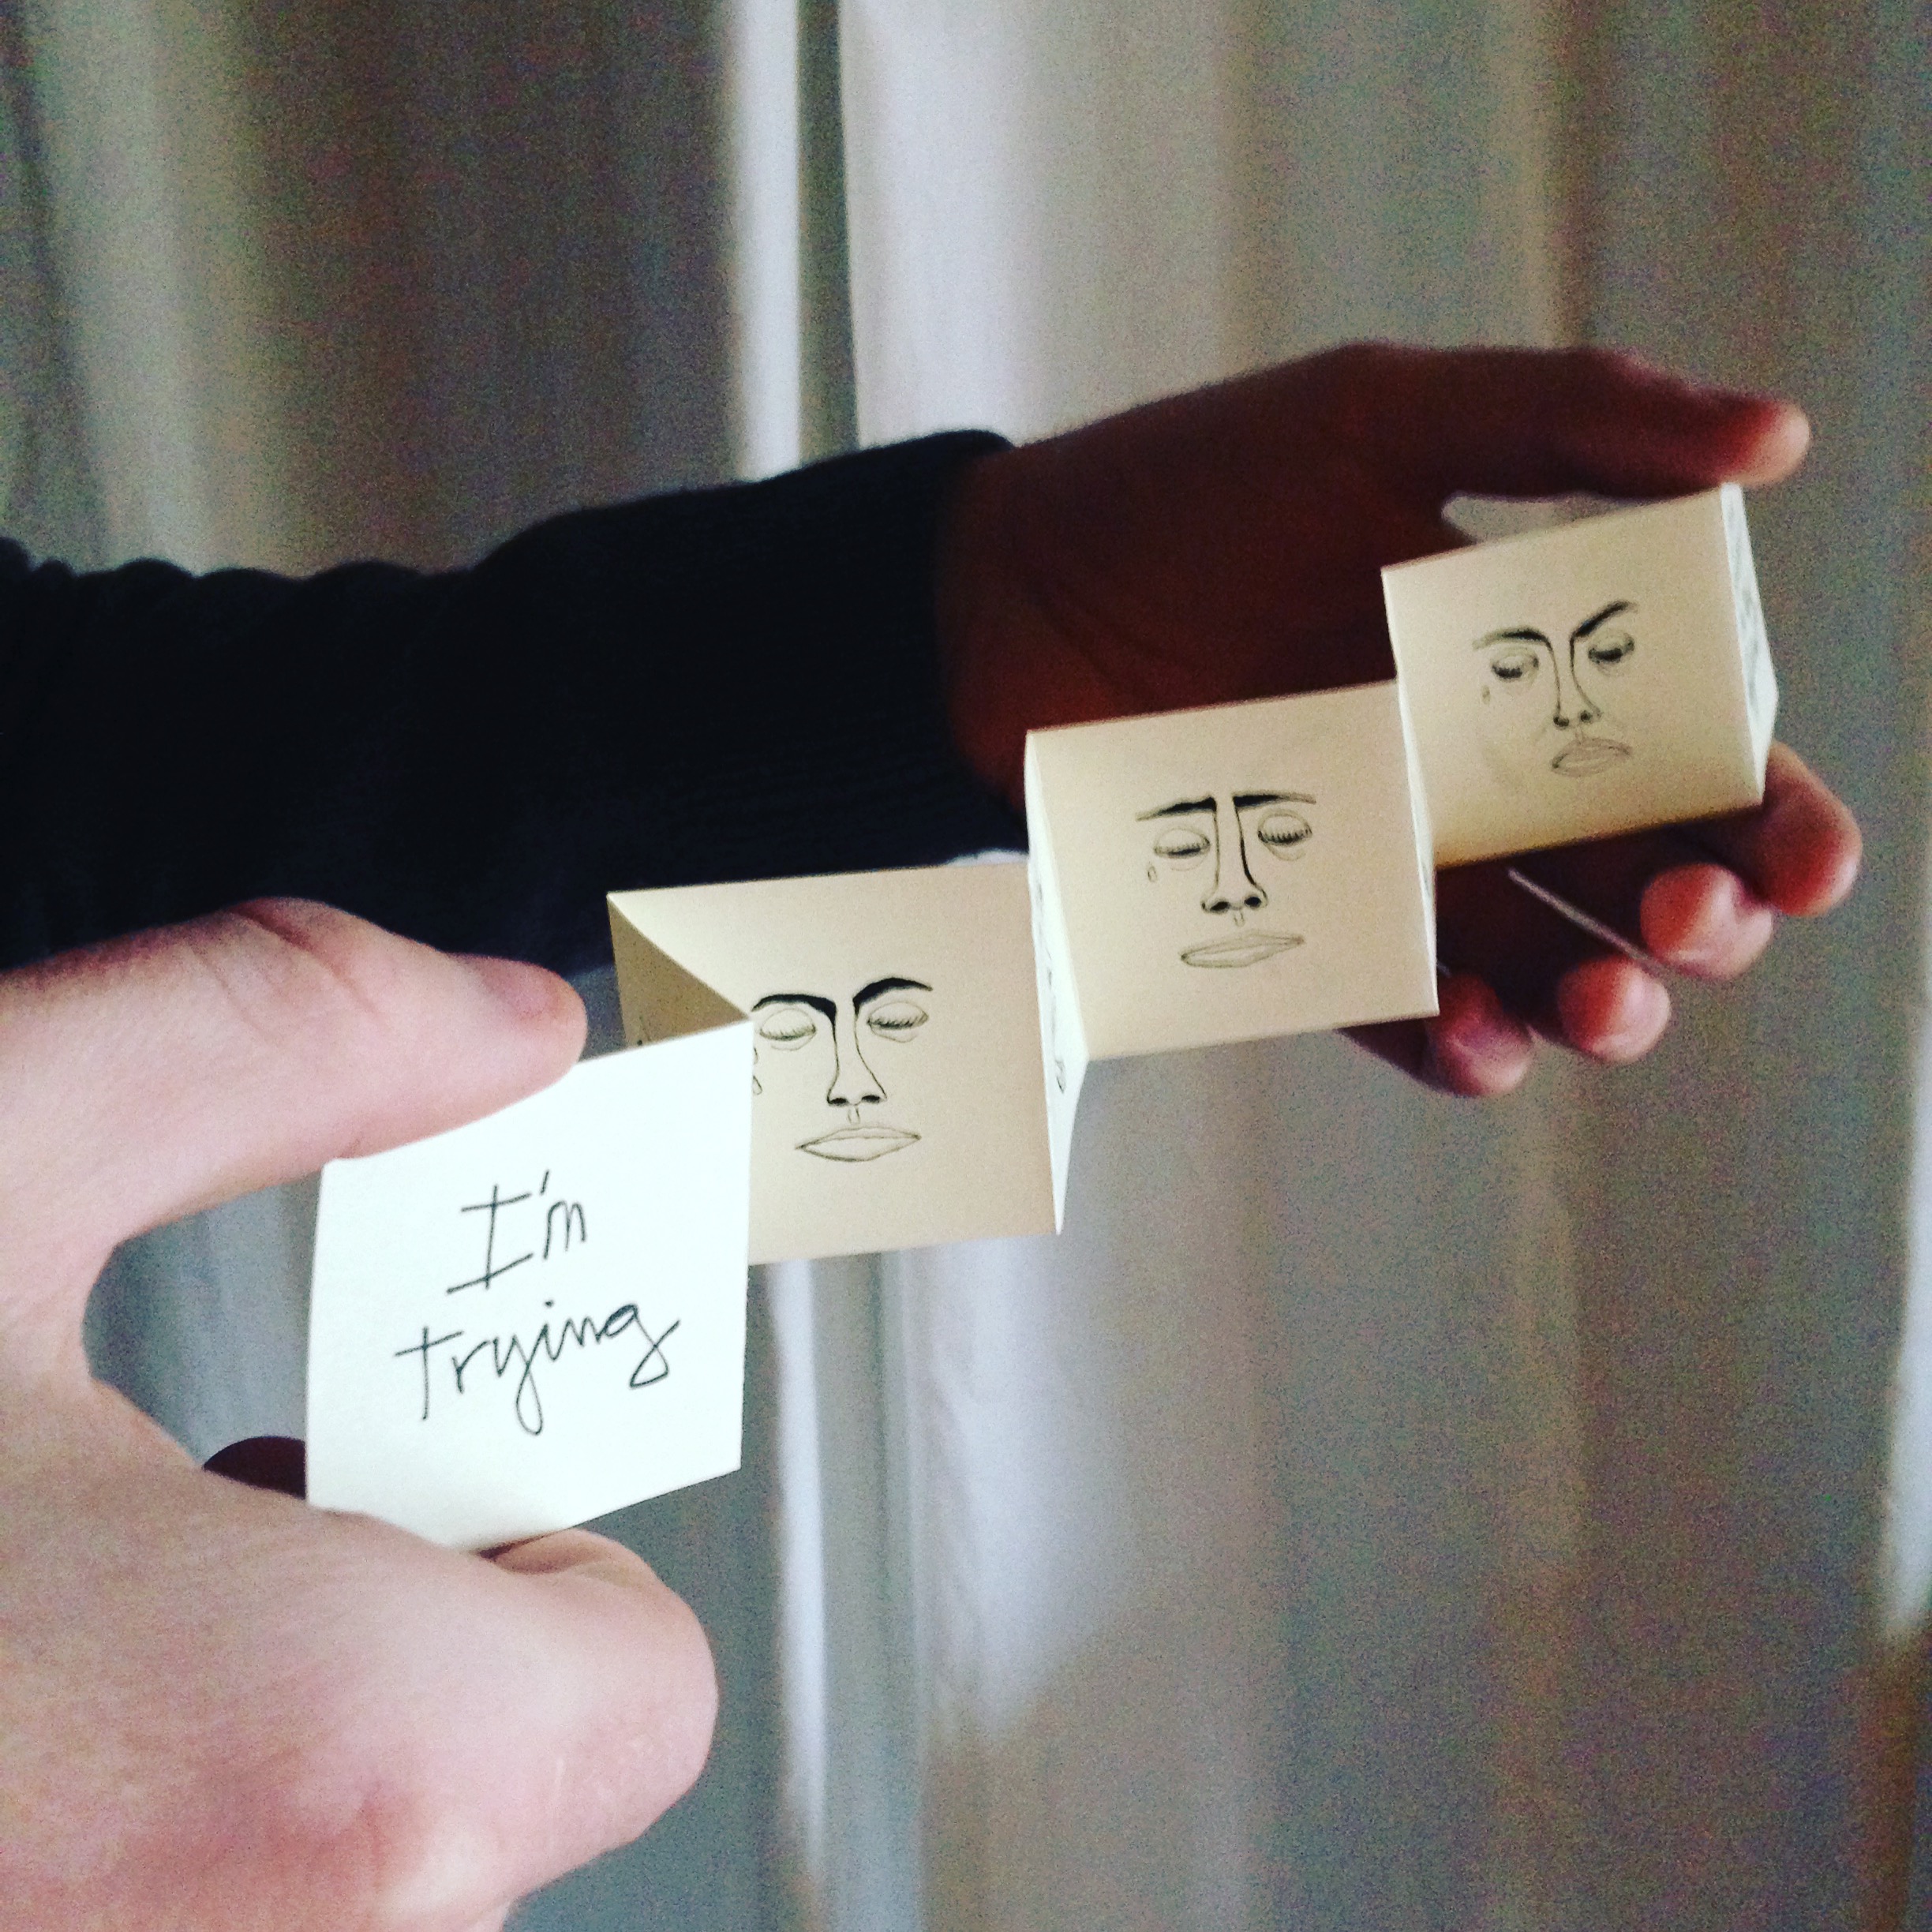 I'm
trying